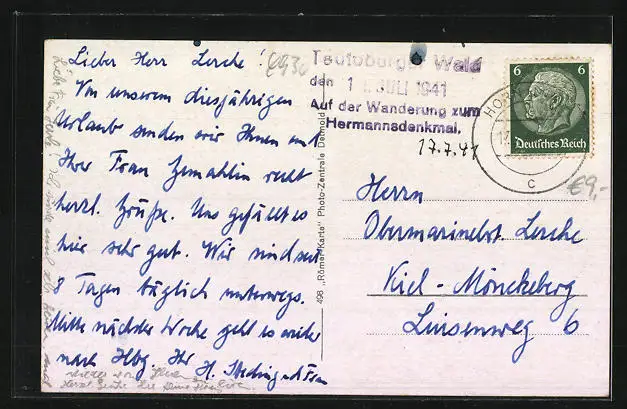 Lieber Herr Lerche!
Von unserem diesjährigen
Urlaub senden wir Ihnen und
Ihrer Frau Gemahlin recht
herzl. Grüße. Uns gefällt es
hier sehr gut. Wir sind seit
8 Tagen täglich unterwegs.
Mitte nächster Woche geht es wieder
nach Hbg. Ihr H. und Frau
Teutoburger Wald
den 1 JULI 1941
Auf der Wanderung zum
Hermannsdenkmal.
17.7.41
6 6
Deutsches Reich
HO
c
€9,-
Herrn
Obermarinebrt. Lerche
Kiel-Mönckeberg
Linsenweg 6
498 „Römer-Karte" Photo-Zentrale Detmold